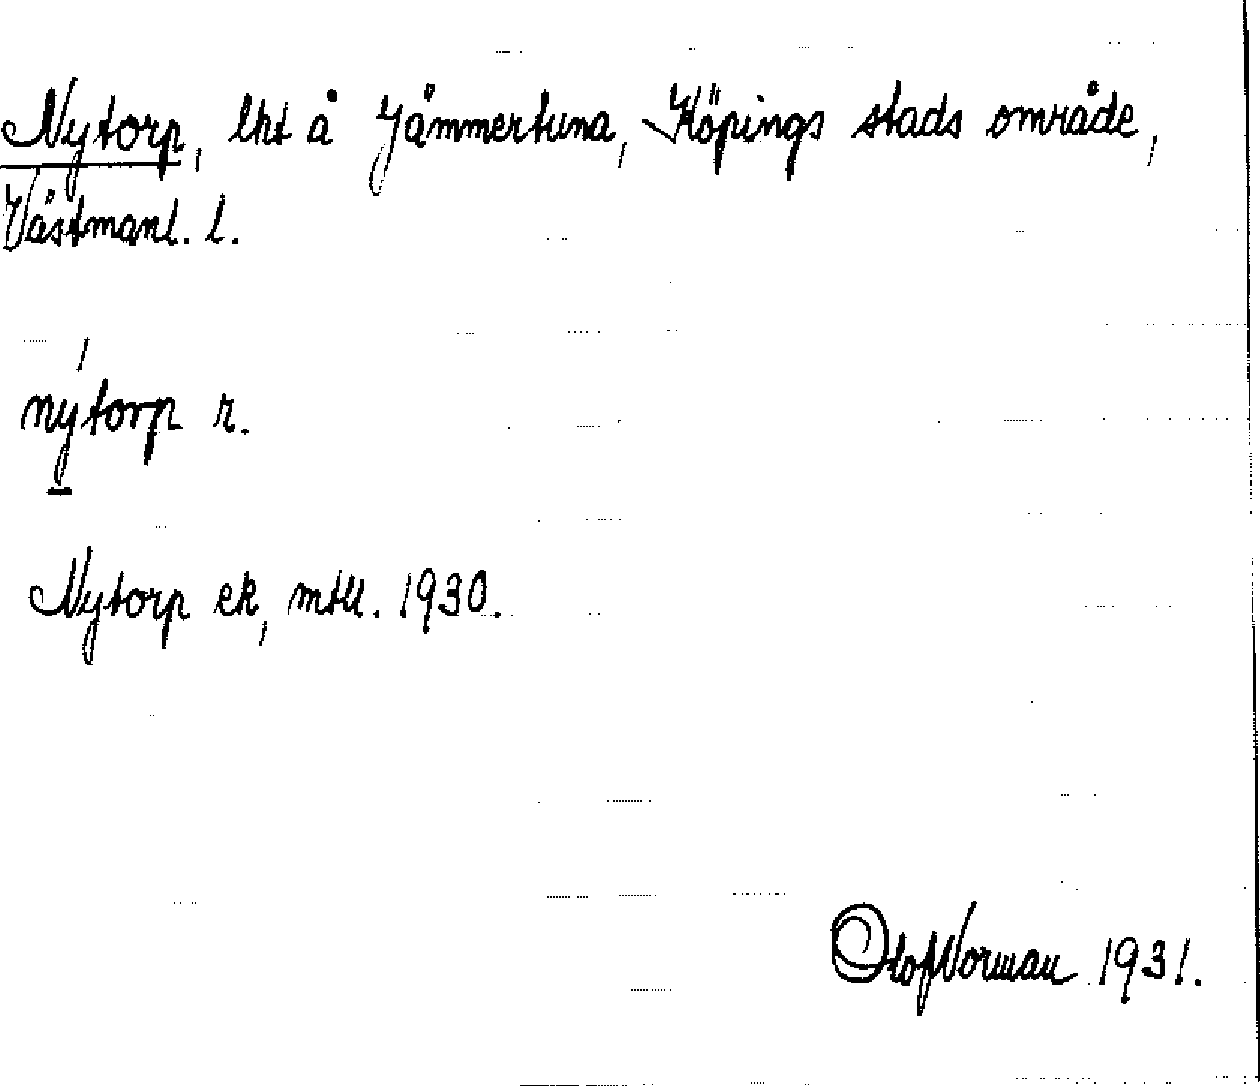 Nytorp, lht å Jämmertuna, Köpings stads område,
Västmanl. l.
nytorp r.
Nytorp ek, mtll. 1930.
Olof Norman 1931.